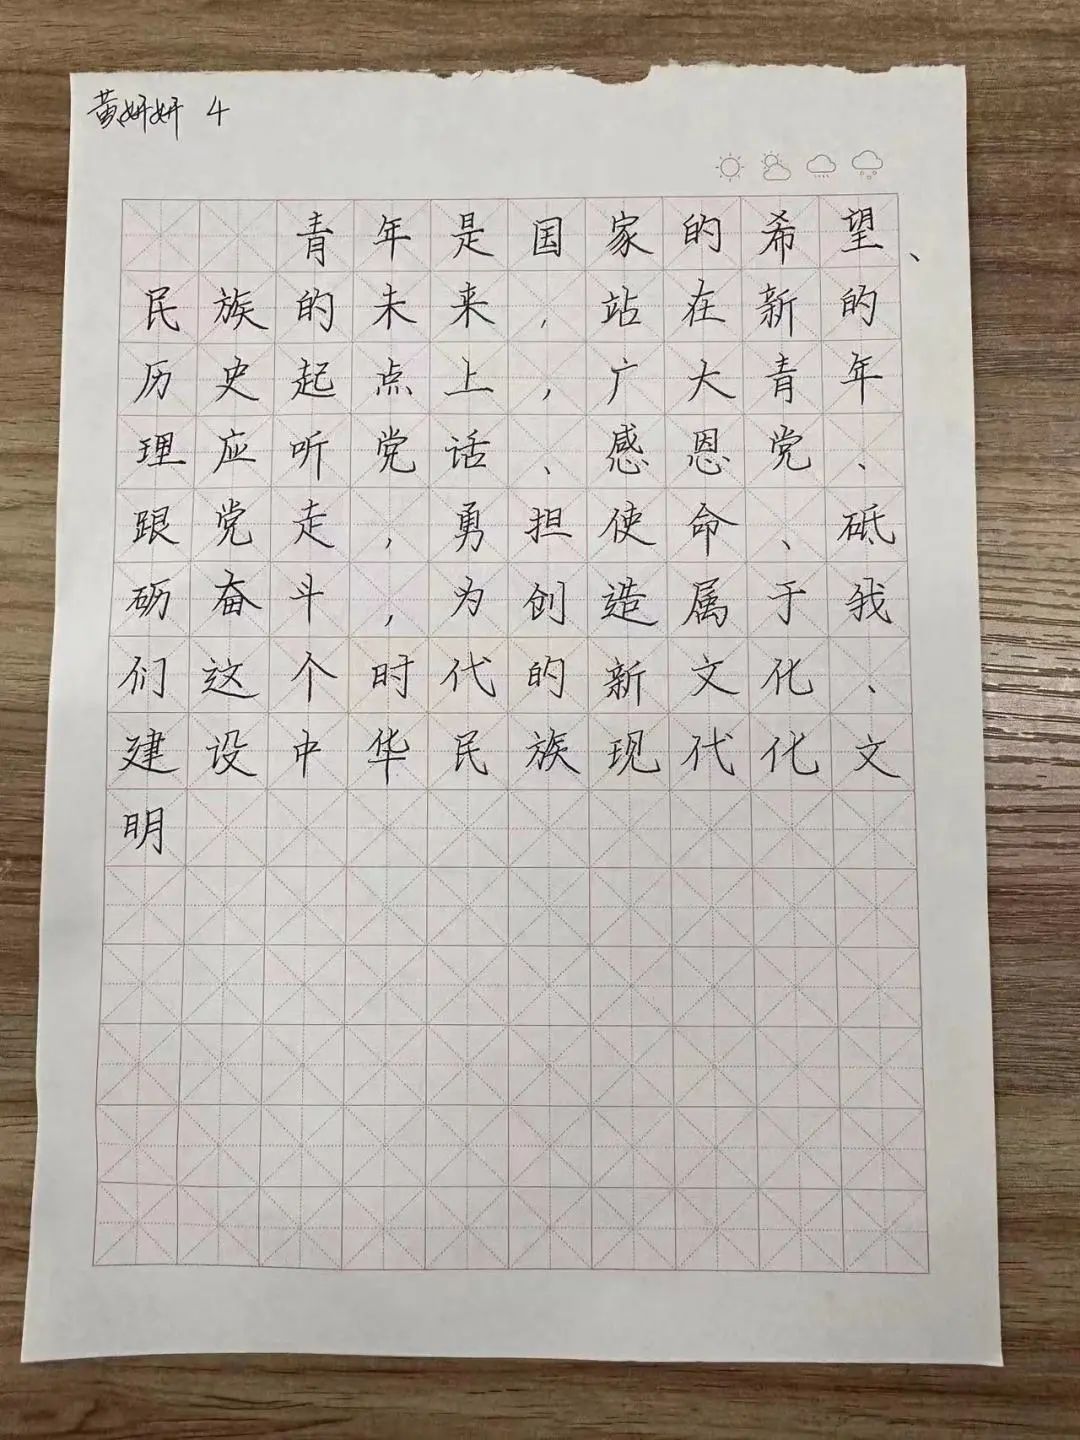 黄妍妍 4
青年是国家的希望、
民族的未来,站在新的
历史起点上,广大青年
理应听党话、感恩党、
跟党走,勇担使命、砥
砺奋斗,为创造属于我
们这个时代的新文化、
建设中华民族现代化文
明